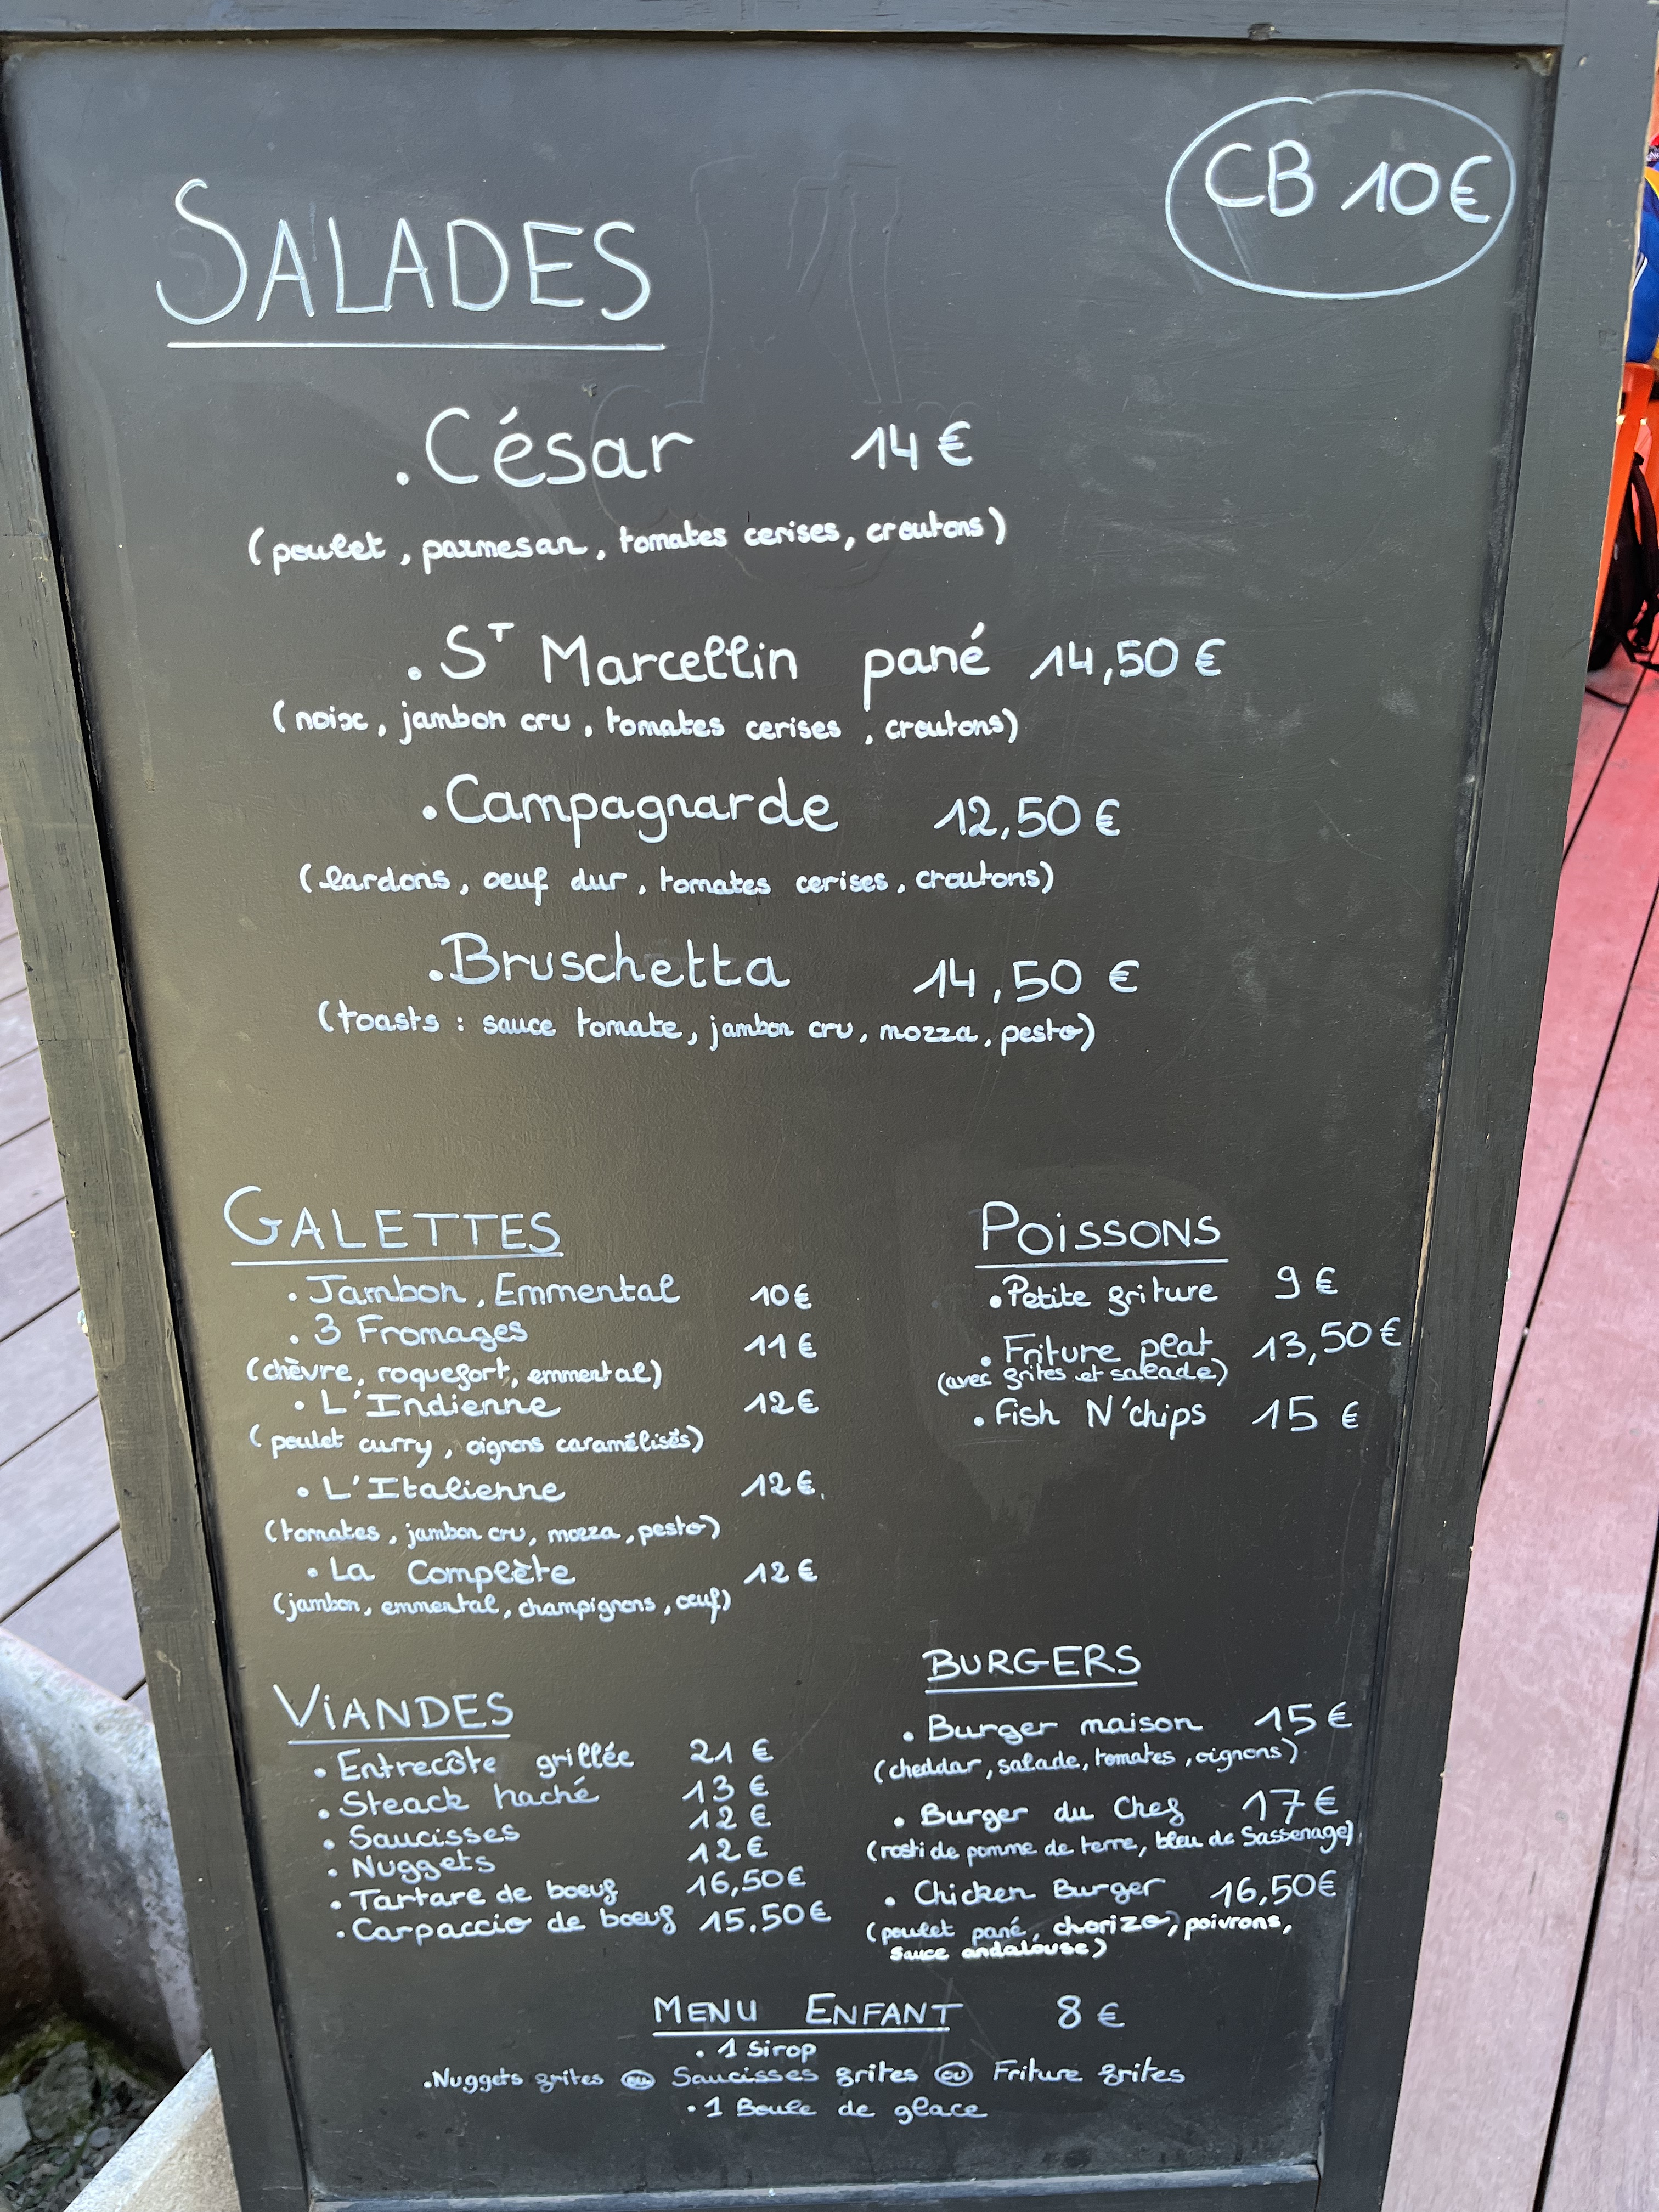 CB 10€
SALADES
. César 14€
(poulet, parmesan, tomates cerises, croutons)
. ST Marcellin pané 14,50€
(noix, jambon cru, tomates cerises, croutons)
. Campagnarde 12,50€
(lardons, oeuf dur, tomates cerises, croutons)
. Bruschetta 14,50 €
(toasts : sauce tomate, jambon cru, mozza, pesto)
GALETTES
. Jambon, Emmental 10€
. 3 Fromages 11€
(chèvre, roquefort, emmental)
. L'Indienne 12€
(poulet curry, oignons caramélisés)
. L'Italienne 12€
(tomates, jambon cru, mozza, pesto)
. La Complète 12€
(jambon, emmental, champignons, oeuf)
POISSONS
. Petite friture 9€
. Friture plat 13,50€
(avec frites et salade)
. Fish N'chips 15€
VIANDES
. Entrecôte grillée 21€
. Steack haché 13€
. Saucisses 12€
. Nuggets 12€
. Tartare de boeuf 16,50€
. Carpaccio de boeuf 15,50€
BURGERS
. Burger maison 15€
(cheddar, salade, tomates, oignons)
. Burger du Chef 17€
(rosti de pomme de terre, bleu de Sassenage)
. Chicken Burger 16,50€
(poulet pané, chorizo, poivrons,
sauce andalouse)
MENU ENFANT 8€
. 1 Sirop
. Nuggets frites ou Saucisses frites ou Friture frites
. 1 Boule de glace